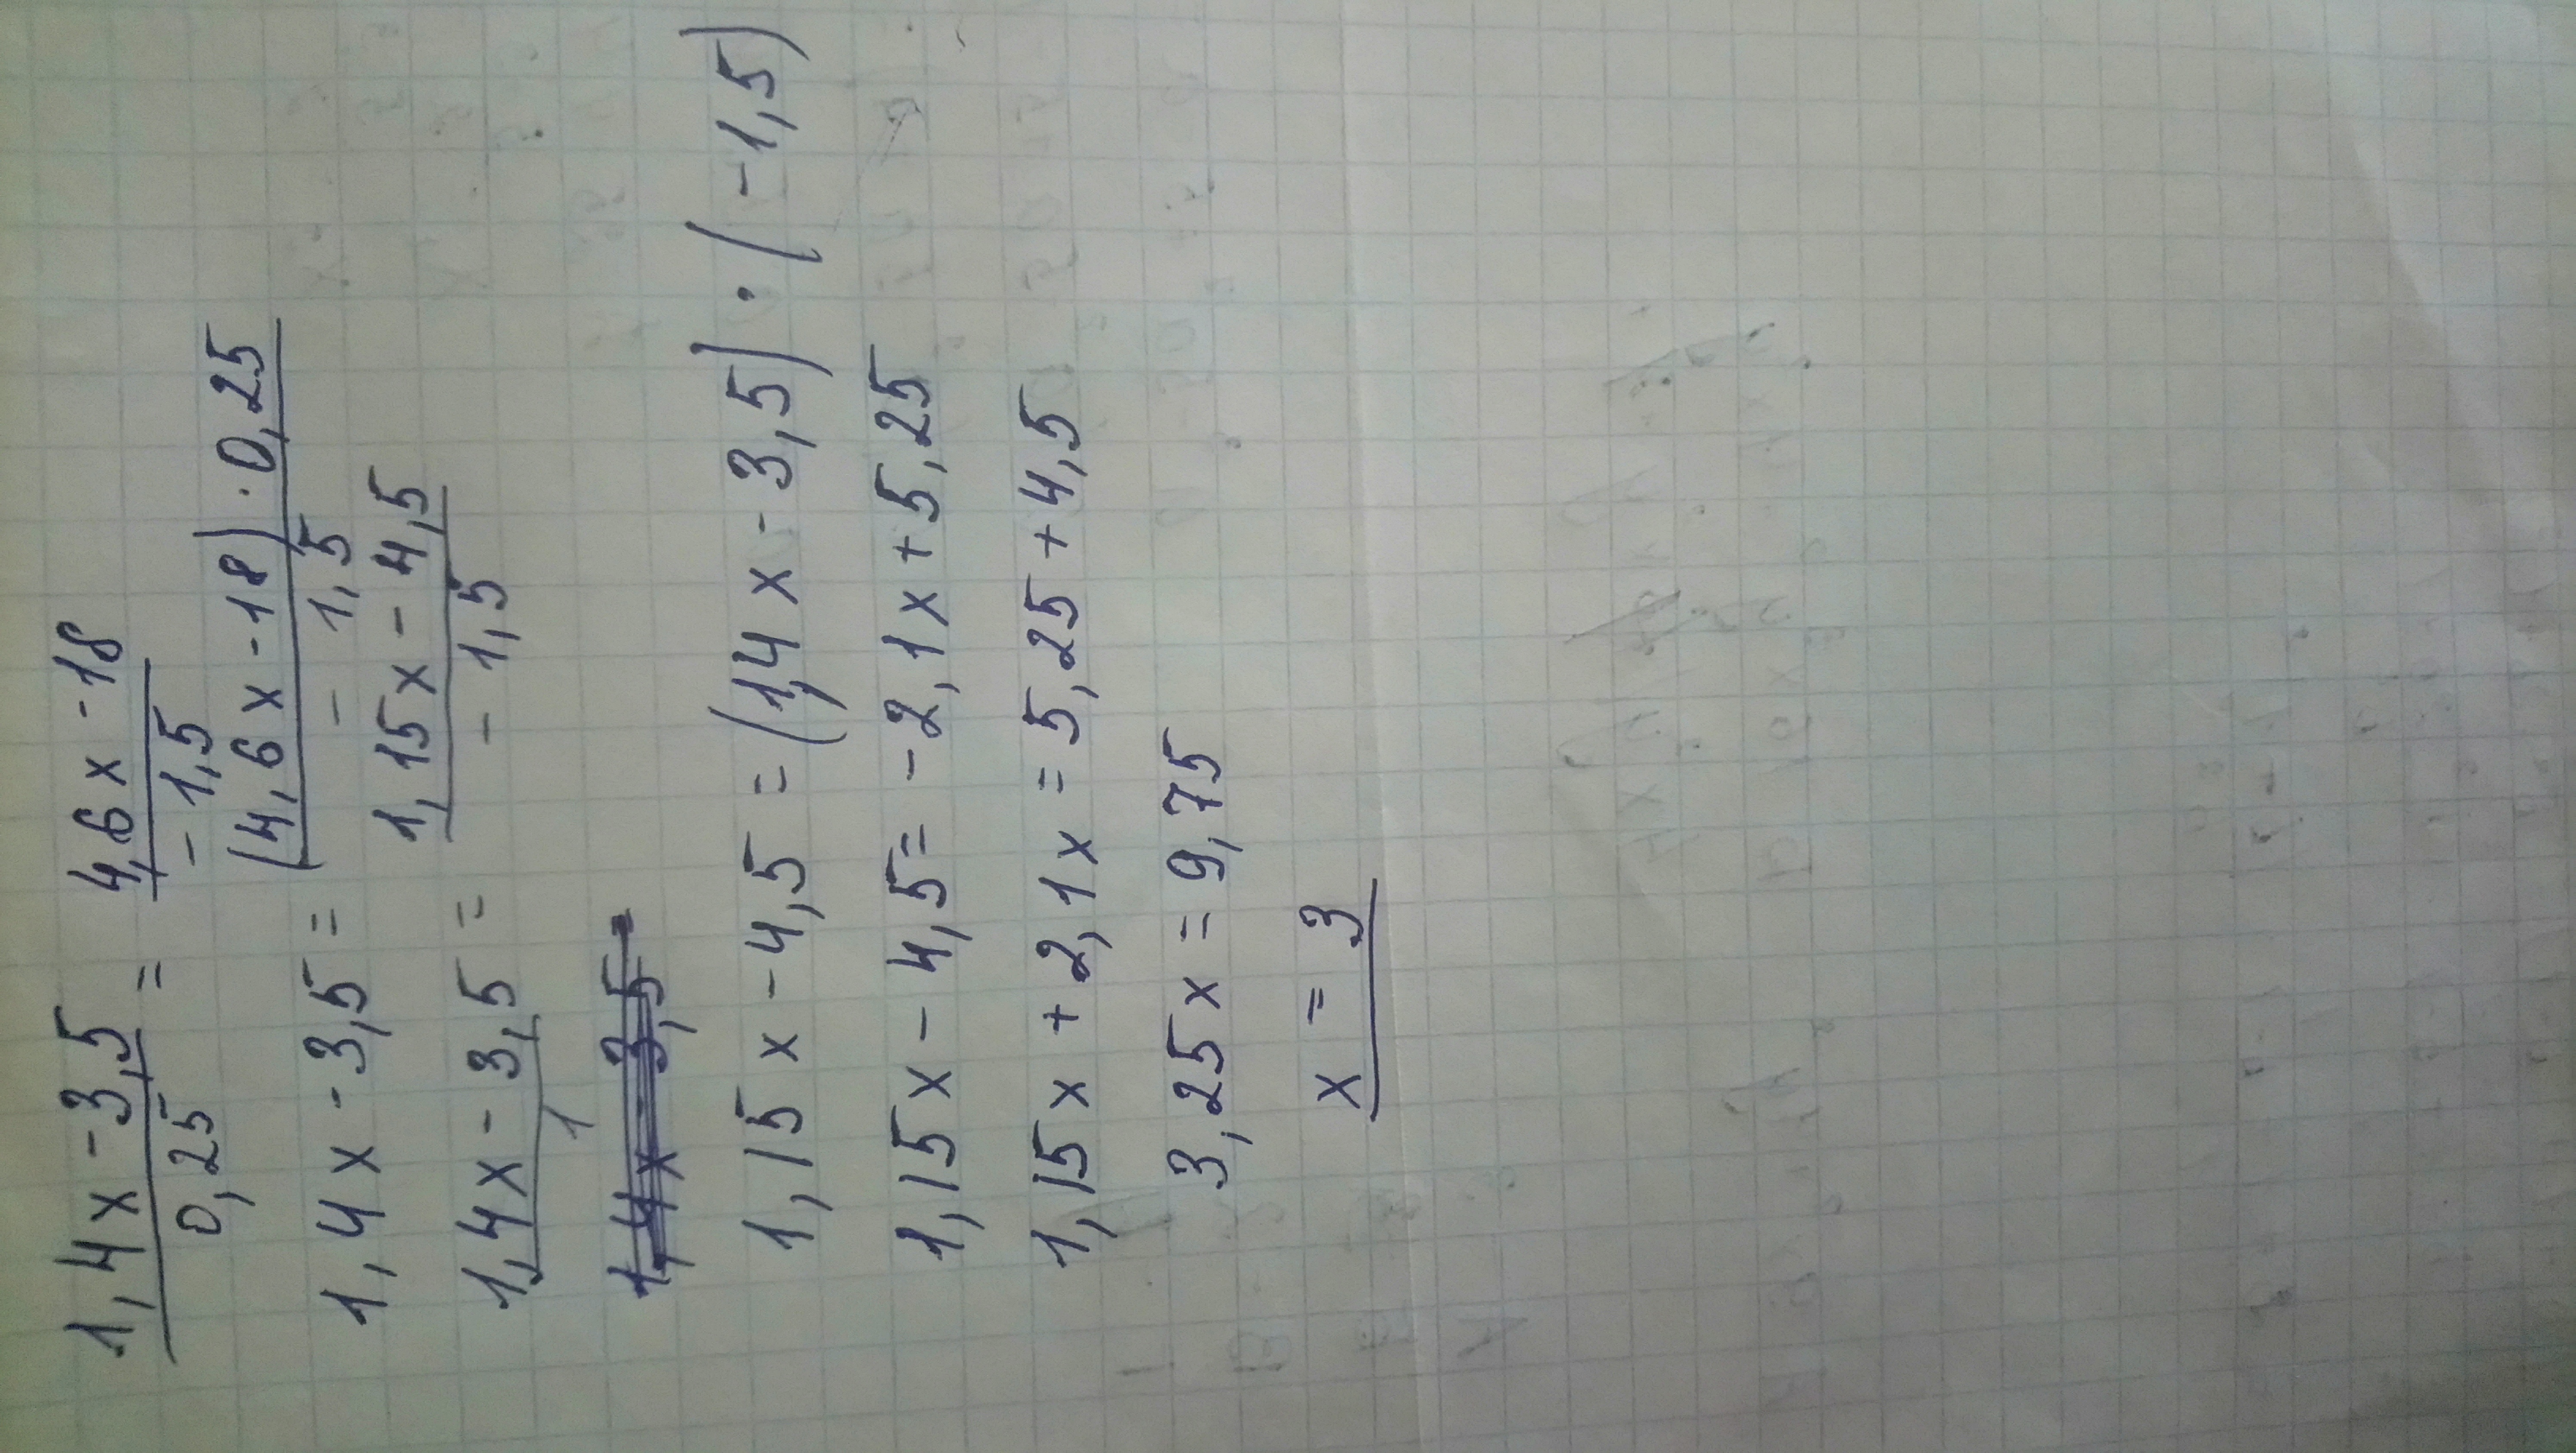 1,4x-3,5 / 0,25 = 4,6x-18 / -1,5
1,4x-3,5 = (4,6x-18)·0,25 / -1,5
1,4x-3,5 / 1 = 1,15x-4,5 / -1,5
1,4x-3,5
1,15x-4,5=(1,4x-3,5)·(-1,5)
1,15x-4,5=-2,1x+5,25
1,15x+2,1x=5,25+4,5
3,25x=9,75
x=3